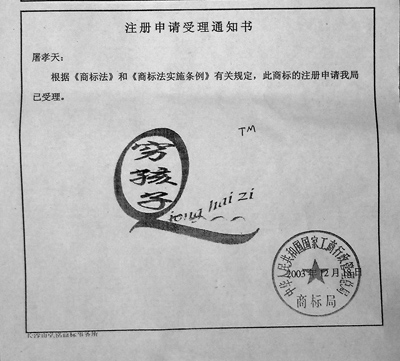 注册申请受理通知书
屠孝天：
根据《商标法》和《商标法实施条例》有关规定，此商标的注册申请我局
已受理。
TM
穷孩子
Qiong hai zi
中华人民共和国国家工商行政管理总局
商标局